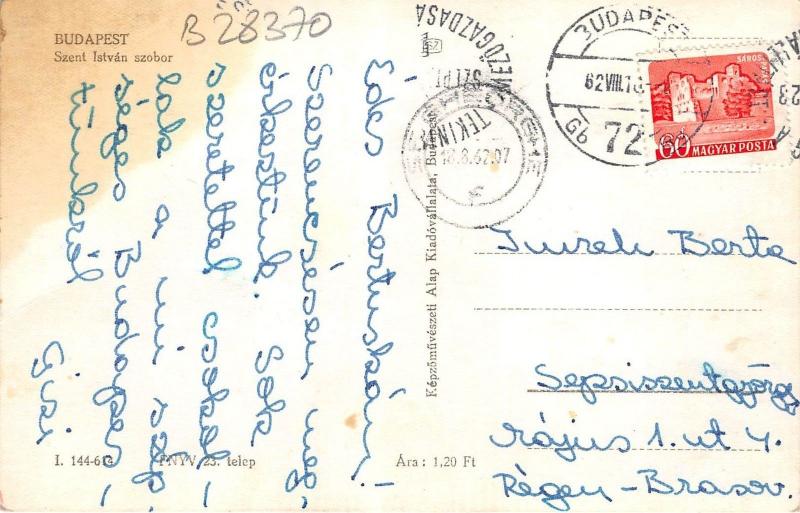 BUDAPEST
Szent István szobor
B 28370
Édes Bertuskám!
Szerencsésen meg-
érkeztünk. Sok
szeretettel csókol-
lak a mi szép-
séges Budapes-
tünkről
Gizi
I. 144-614
FNYV 23. telep
Ára: 1,20 Ft
Képzőművészeti Alap Kiadóvállalata, Budapest
MEZŐGAZDASÁ
SZEPT
TEKIN
18.8.62.07
BUDAPEST
62 VIII.1
72
SÁROS
60 MAGYAR POSTA
Imreh Berta
Sepsiszentgyörgy
Május 1. ut 4.
Régen - Brasov.